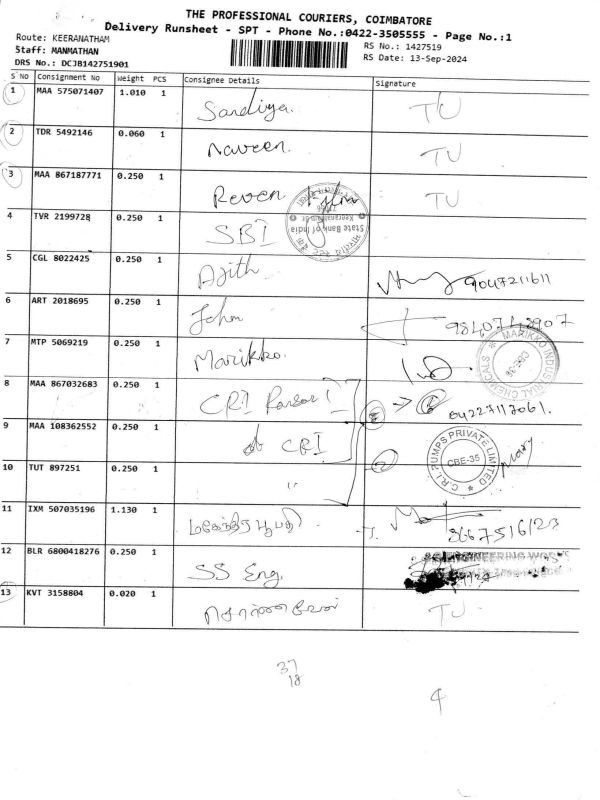 THE PROFESSIONAL COURIERS, COIMBATORE
Delivery Runsheet - SPT - Phone No.:0422-3505555 - Page No.:1
Route: KEERANATHAM
RS No.: 1427519
Staff: MANMATHAN
RS Date: 13-Sep-2024
DRS No.: DCJB142751901
S No Consignment No Weight PCS Consignee Details Signature
1 MAA 575071407 1.010 1 Sandiya TU
2 TDR 5492146 0.060 1 Naveen TU
3 MAA 867187771 0.250 1 Reven TU
4 TVR 2199728 0.250 1 SBI State Bank of India
5 CGL 8022425 0.250 1 Ajith 9047211611
6 ART 2018695 0.250 1 John 9840748907
7 MTP 5069219 0.250 1 Marikko MARIKKO INDUSTRIAL CHEMICALS
8 MAA 867032683 0.250 1 CRI
9 MAA 108362552 0.250 1 CRI
10 TUT 897251 0.250 1 " C.R.I. PUMPS PRIVATE LIMITED CBE-35
11 IXM 507035196 1.130 1 மகேந்திர பூபதி
12 BLR 6800418276 0.250 1 SS Eng. ENGINEERING WORKS
13 KVT 3158804 0.020 1 TU
37
18